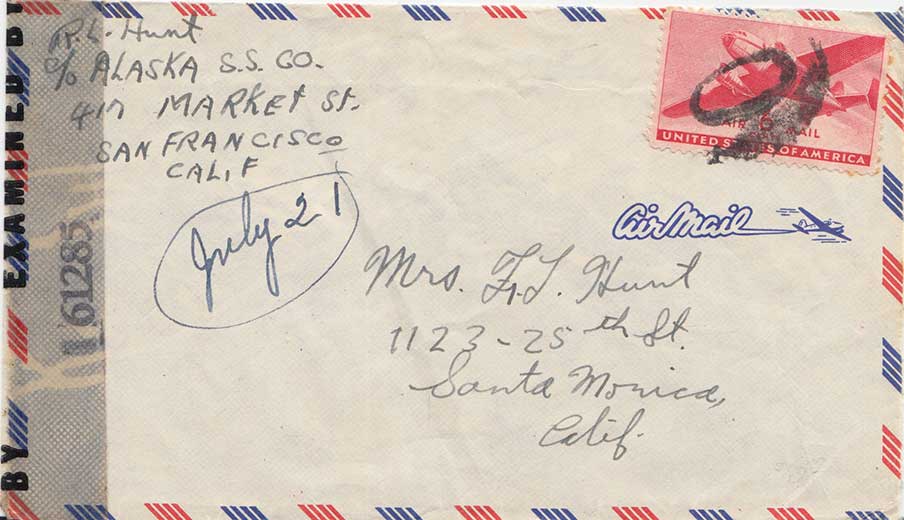 R. L. Hunt
c/o ALASKA S.S. CO.
417 MARKET St.
SAN FRANCISCO
CALIF
July 21
6
AIR MAIL
UNITED STATES OF AMERICA
Air Mail
Mrs. F. L. Hunt
1123-25th St.
Santa Monica,
Calif.
EXAMINED BY
61285
BY